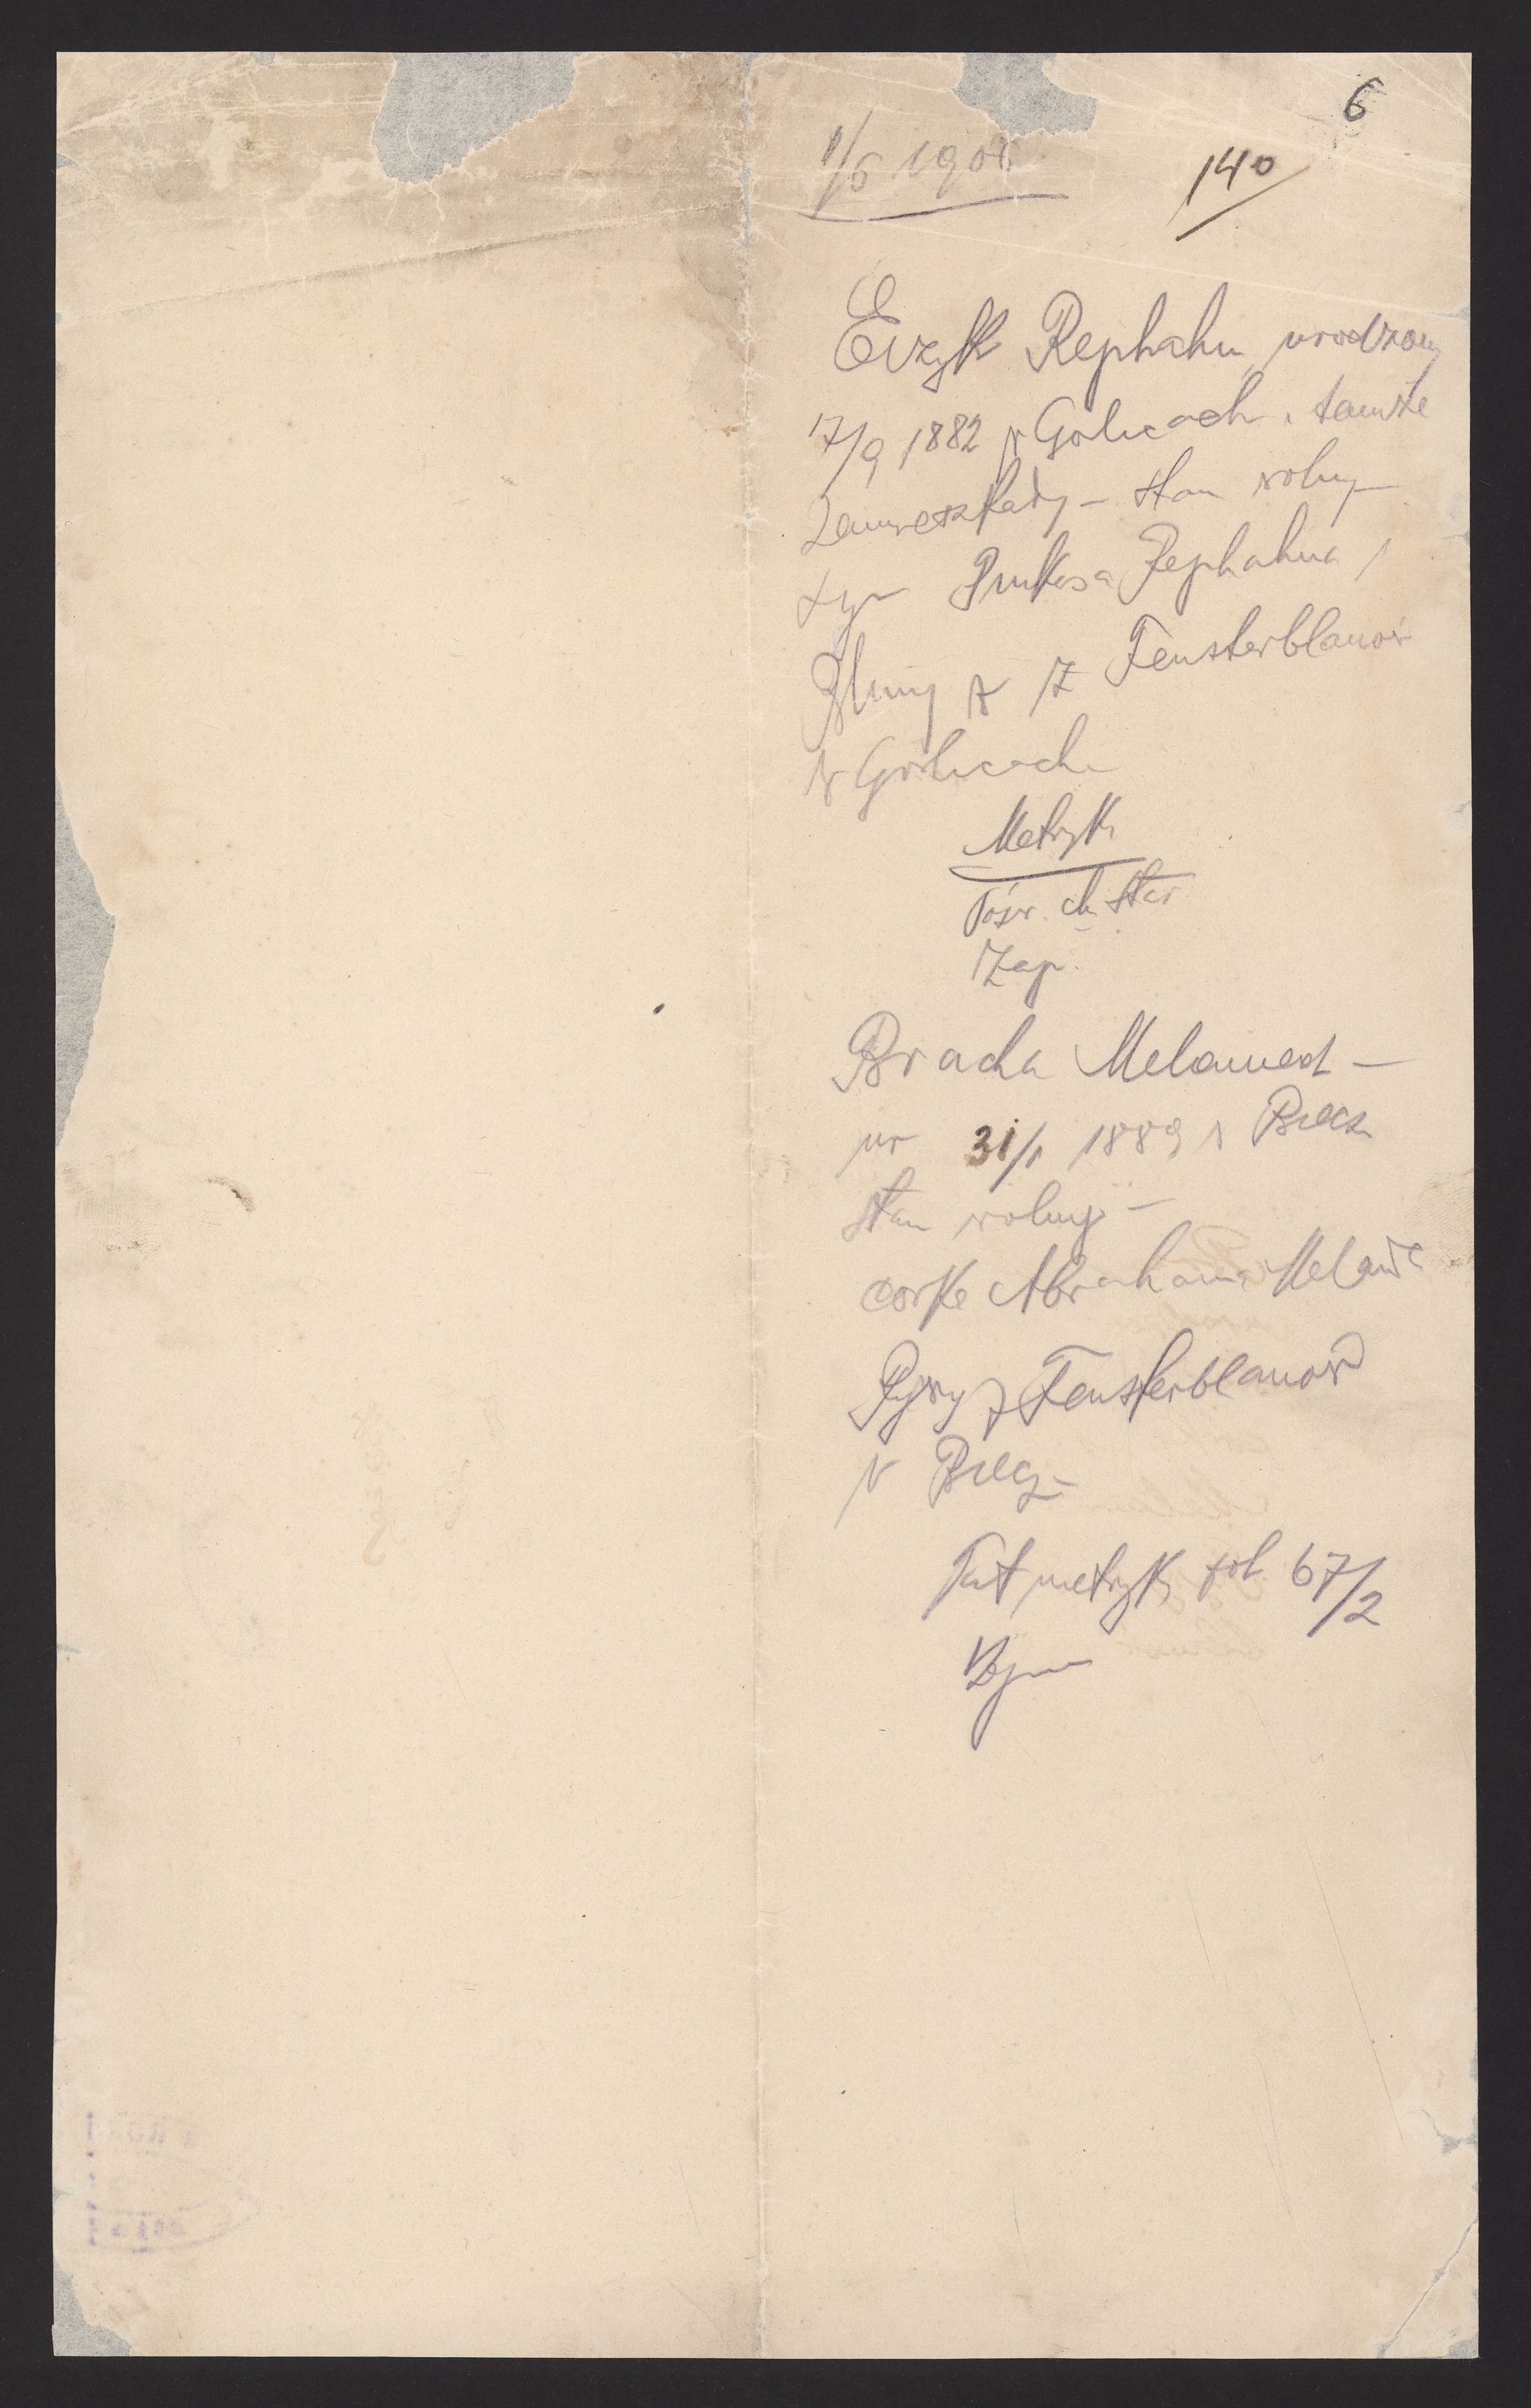 6
1/6 190
140
Eizyk Rephahn urodzony
17/9 1882 w Gorlicach i tamże
zamieszkały – stan wolny –
syn Pinkasa Rephahna i
Blimy z Fensterblauów
w Gorlicach
Metryk
Pośw. ch Star
Zap.
Bracha Melamed –
ur 31/1 1889 w Biecz
stan wolny –
corke Abrahama Melamd
z Fensterblauów
w Biecz –
metryk fol. 67/2